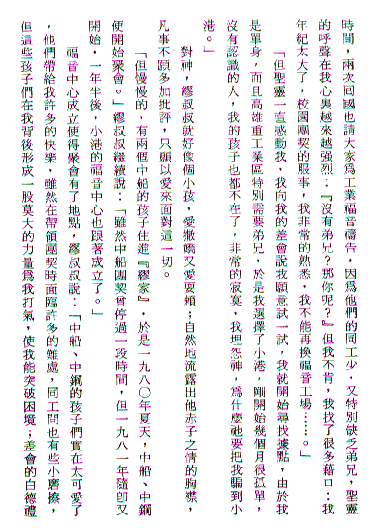 時間，兩次回國也請大家爲工業福音禱告，因爲他們的同工少，又特別缺乏弟兄，聖靈
的呼聲在我心裏越來越强烈：『沒有弟兄？那你呢？』但我不肯，我找了很多藉口：我
年紀太大了，校園團契的服事，我非常的熟悉，我不能再換福音工場……。」
「但聖靈一直感動我，我向我的差會說我願意試一試，我就開始尋找據點，由於我
是單身，而且高雄重工業區特別需要弟兄，於是我選擇了小港，剛開始幾個月很孤單，
沒有認識的人，我的孩子也都不在了，非常的寂寞，我埋怨神，爲什麼祂要把我騙到小
港。」
對神，繆叔叔就好像個小孩，愛撒嬌又愛耍賴；自然地流露出他赤子之情的胸襟，
凡事不願多加批評，只願以愛來面對這一切。
「但慢慢的，有兩個中船的孩子住進『繆家』，於是一九八〇年夏天，中船、中鋼
便開始聚會。」繆叔叔繼續說：「雖然中船團契曾停過一段時間，但一九八一年隨即又
開始，一年半後，小港的福音中心也跟著成立了。」
福音中心成立使得聚會有了地點，繆叔叔說：「中船、中鋼的孩子們實在太可愛了
，他們帶給我許多的快樂，雖然在帶領團契時面臨許多的難處，同工間也有些小磨擦，
但這些孩子們在我背後形成一股莫大的力量爲我打氣，使我能突破困境；差會的白德禮